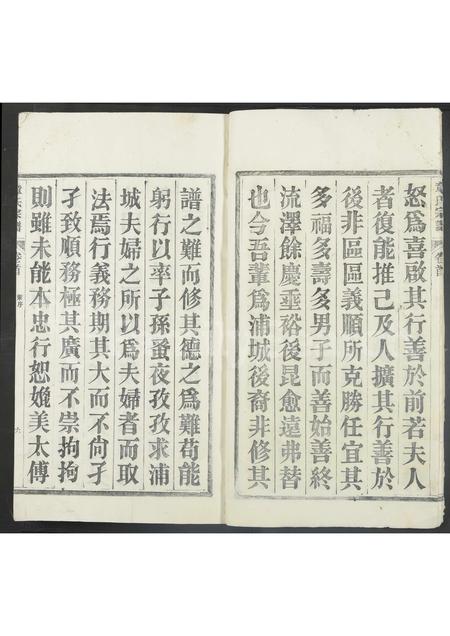 怒為喜啟其行善於前若夫人
者復能推己及人擴其行善於
後非區區義順所克勝任宜其
多福多壽多男子而善始善終
流澤餘慶垂裕後昆愈遠弗替
也今吾輩為浦城後裔非修其
譜之難而修其德之為難苟能
躬行以率子孫蚤夜孜孜求浦
城夫婦之所以為夫婦者而取
法焉行義務期其大而不尙孑
孑致順務極其廣而不崇拘拘
則雖未能本忠行恕媲美太傅
章氏宗譜
卷首